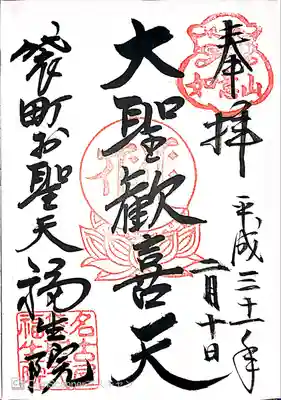 奉拝
平成三十一年
二月十日
大聖歓喜天
袋町お聖天
福生院
如意山